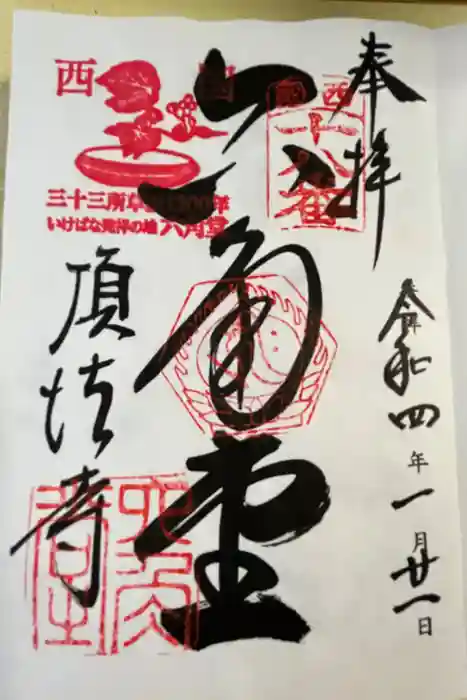 奉拝
令和四年一月廿一日
西国
十八番
六角堂
西国
三十三所草創1300年
いけばな発祥の地 六角堂
頂法寺